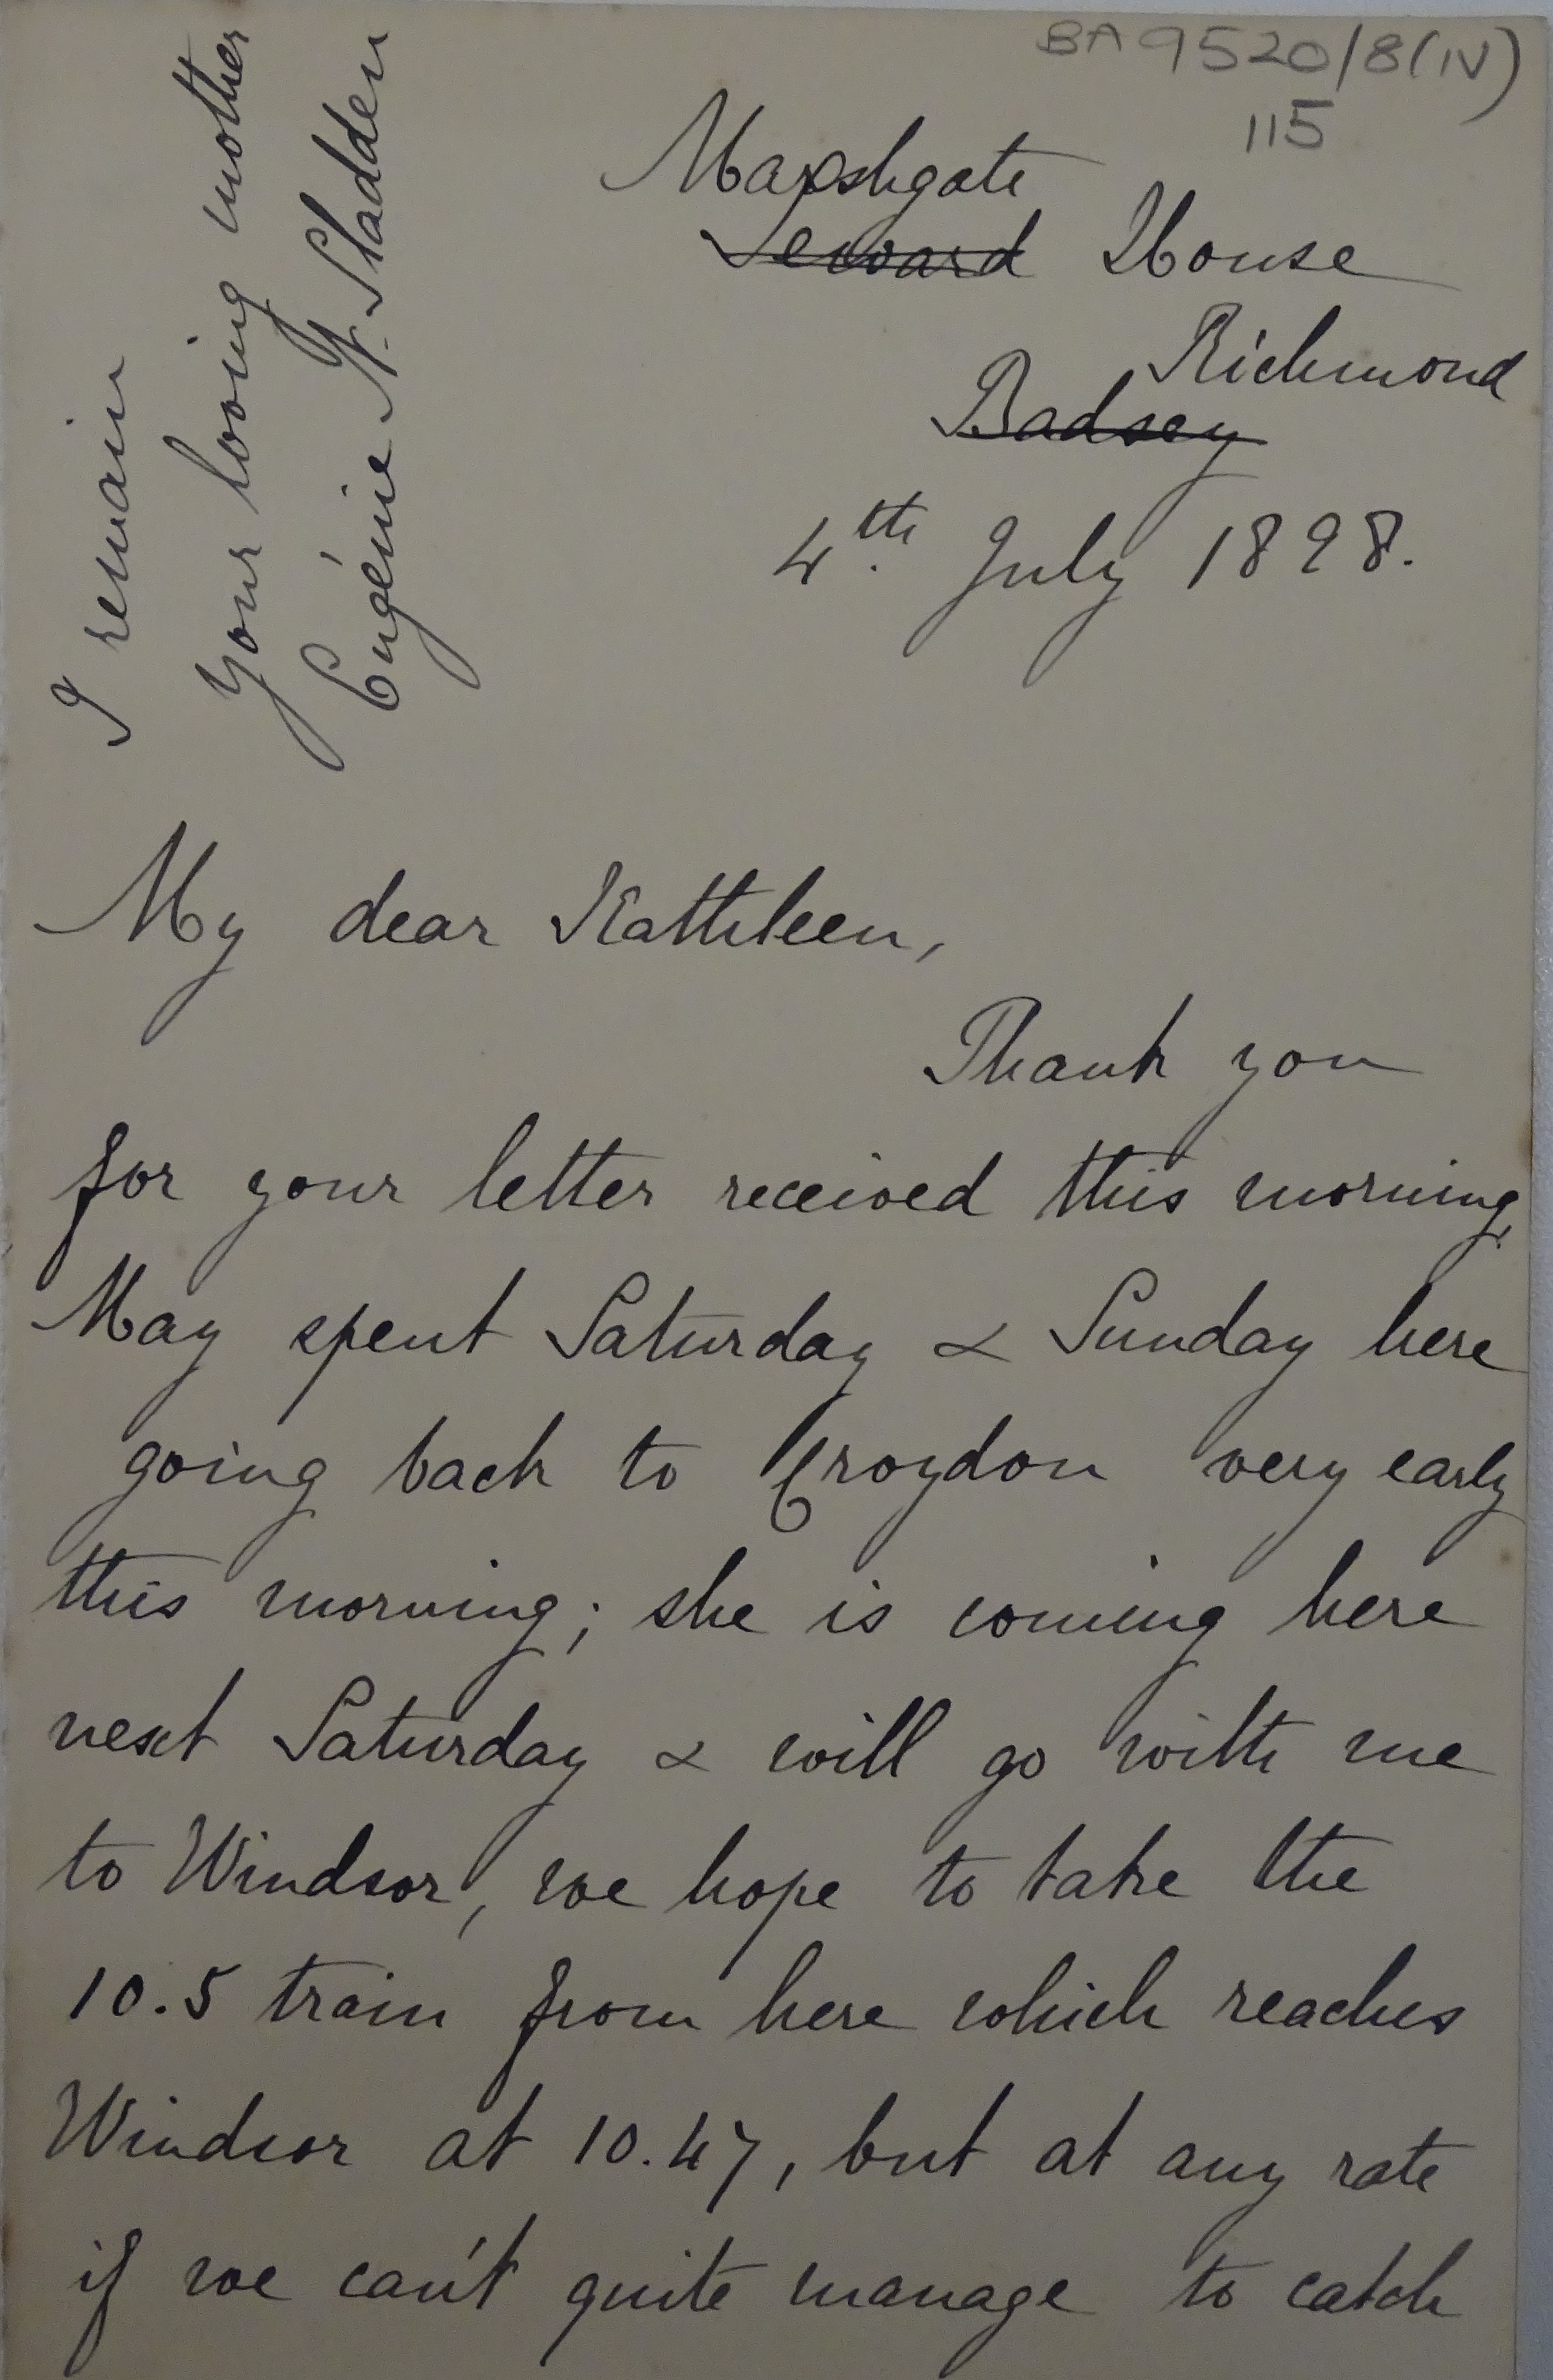 BA 9520/8(IV)
115
Marshgate
Seward House
Richmond
Badsey
4th July 1898.
My dear Kathleen,
Thank you
for your letter received this morning,
May spent Saturday & Sunday here
going back to Croydon very early
this morning; she is coming here
next Saturday & will go with me
to Windsor, we hope to take the
10.5 train from here which reaches
Windsor at 10.47, but at any rate
if we can't quite manage to catch
I remain
your loving mother
Eugénie N. Sladden